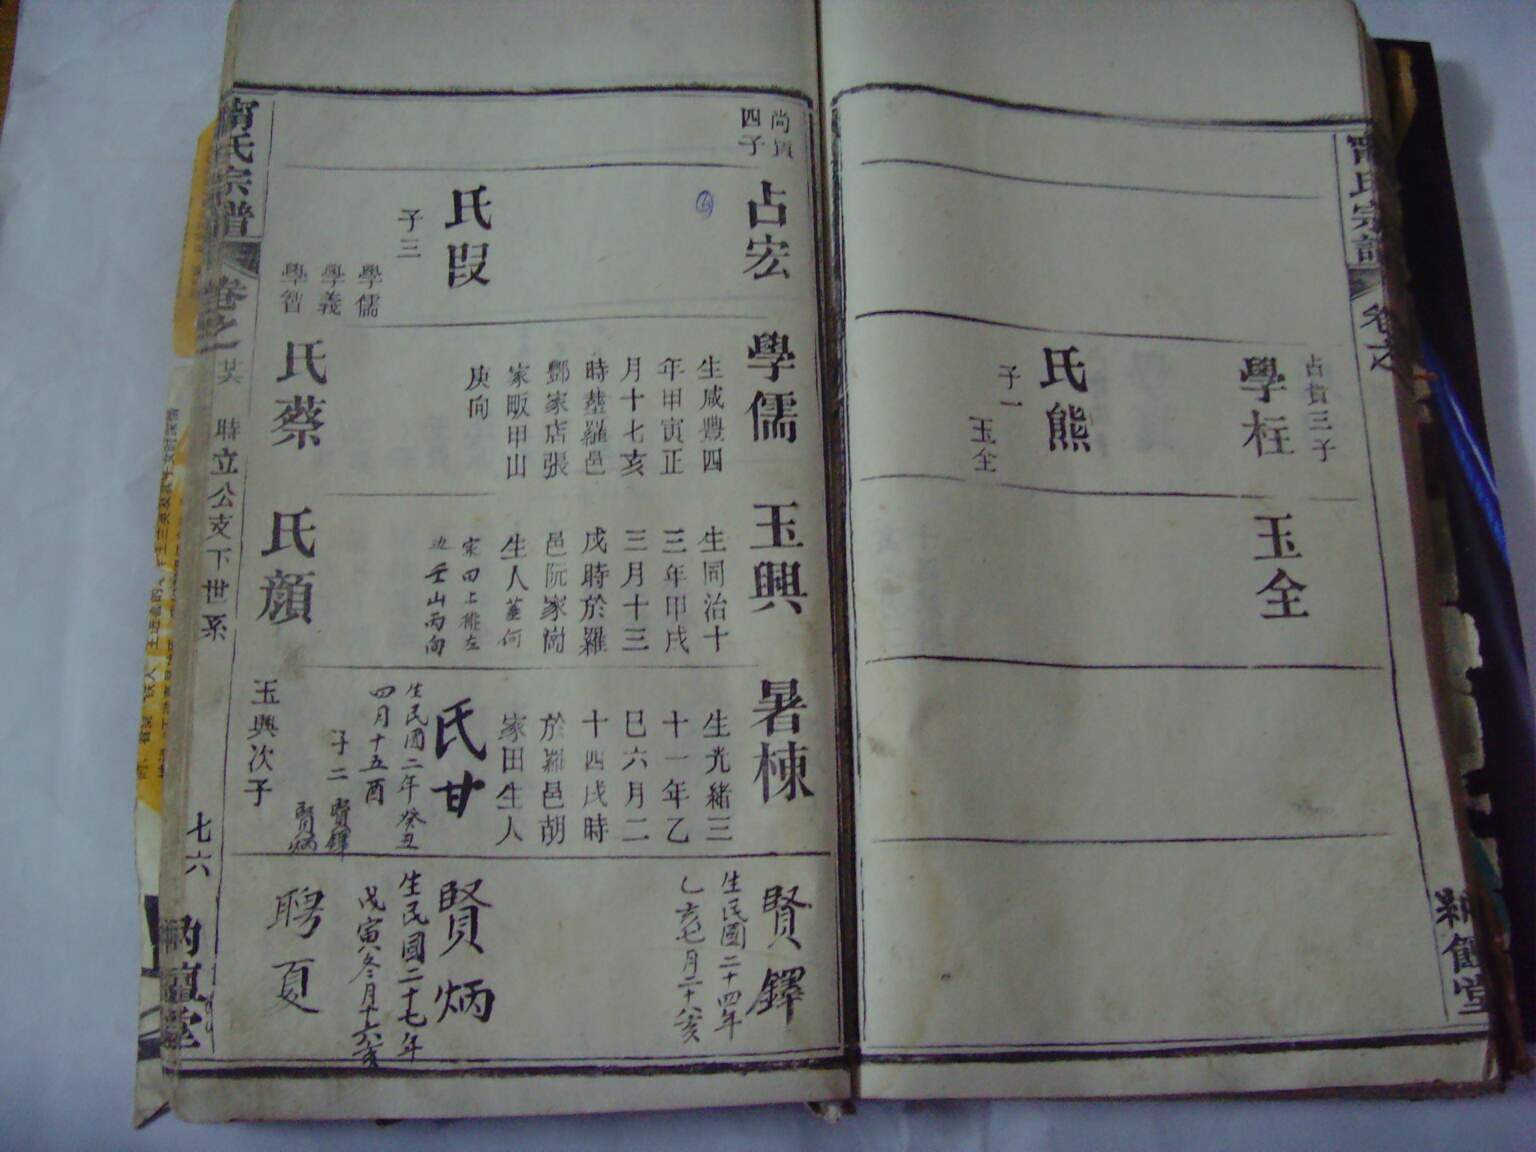 氏宗譜
卷之
占貴三子
學柱
氏熊
子一
玉全
玉全
堂
尚質
四子
占宏
氏叚
子三
學儒
學義
學智
學儒
生咸豐四
年甲寅正
月十七亥
時塟羅邑
酆家店張
家畈甲山
庚向
氏蔡
玉興
生同治十
三年甲戌
三月十三
戌時於羅
邑阮家崗
生人
家田上
壬山丙向
氏顔
暑棟
生光緒三
十一年乙
巳六月二
十四戌時
於羅邑胡
家田生人
氏甘
生民國二年癸丑
四月十五酉
子二
賢鐸
賢炳
玉興次子
賢鐸
生民國二十四年
乙亥七月二十八亥
賢炳
生民國二十七年
戊寅冬月十六亥
聘夏
甯氏宗譜
卷之
時立公支下世系
七六
堂